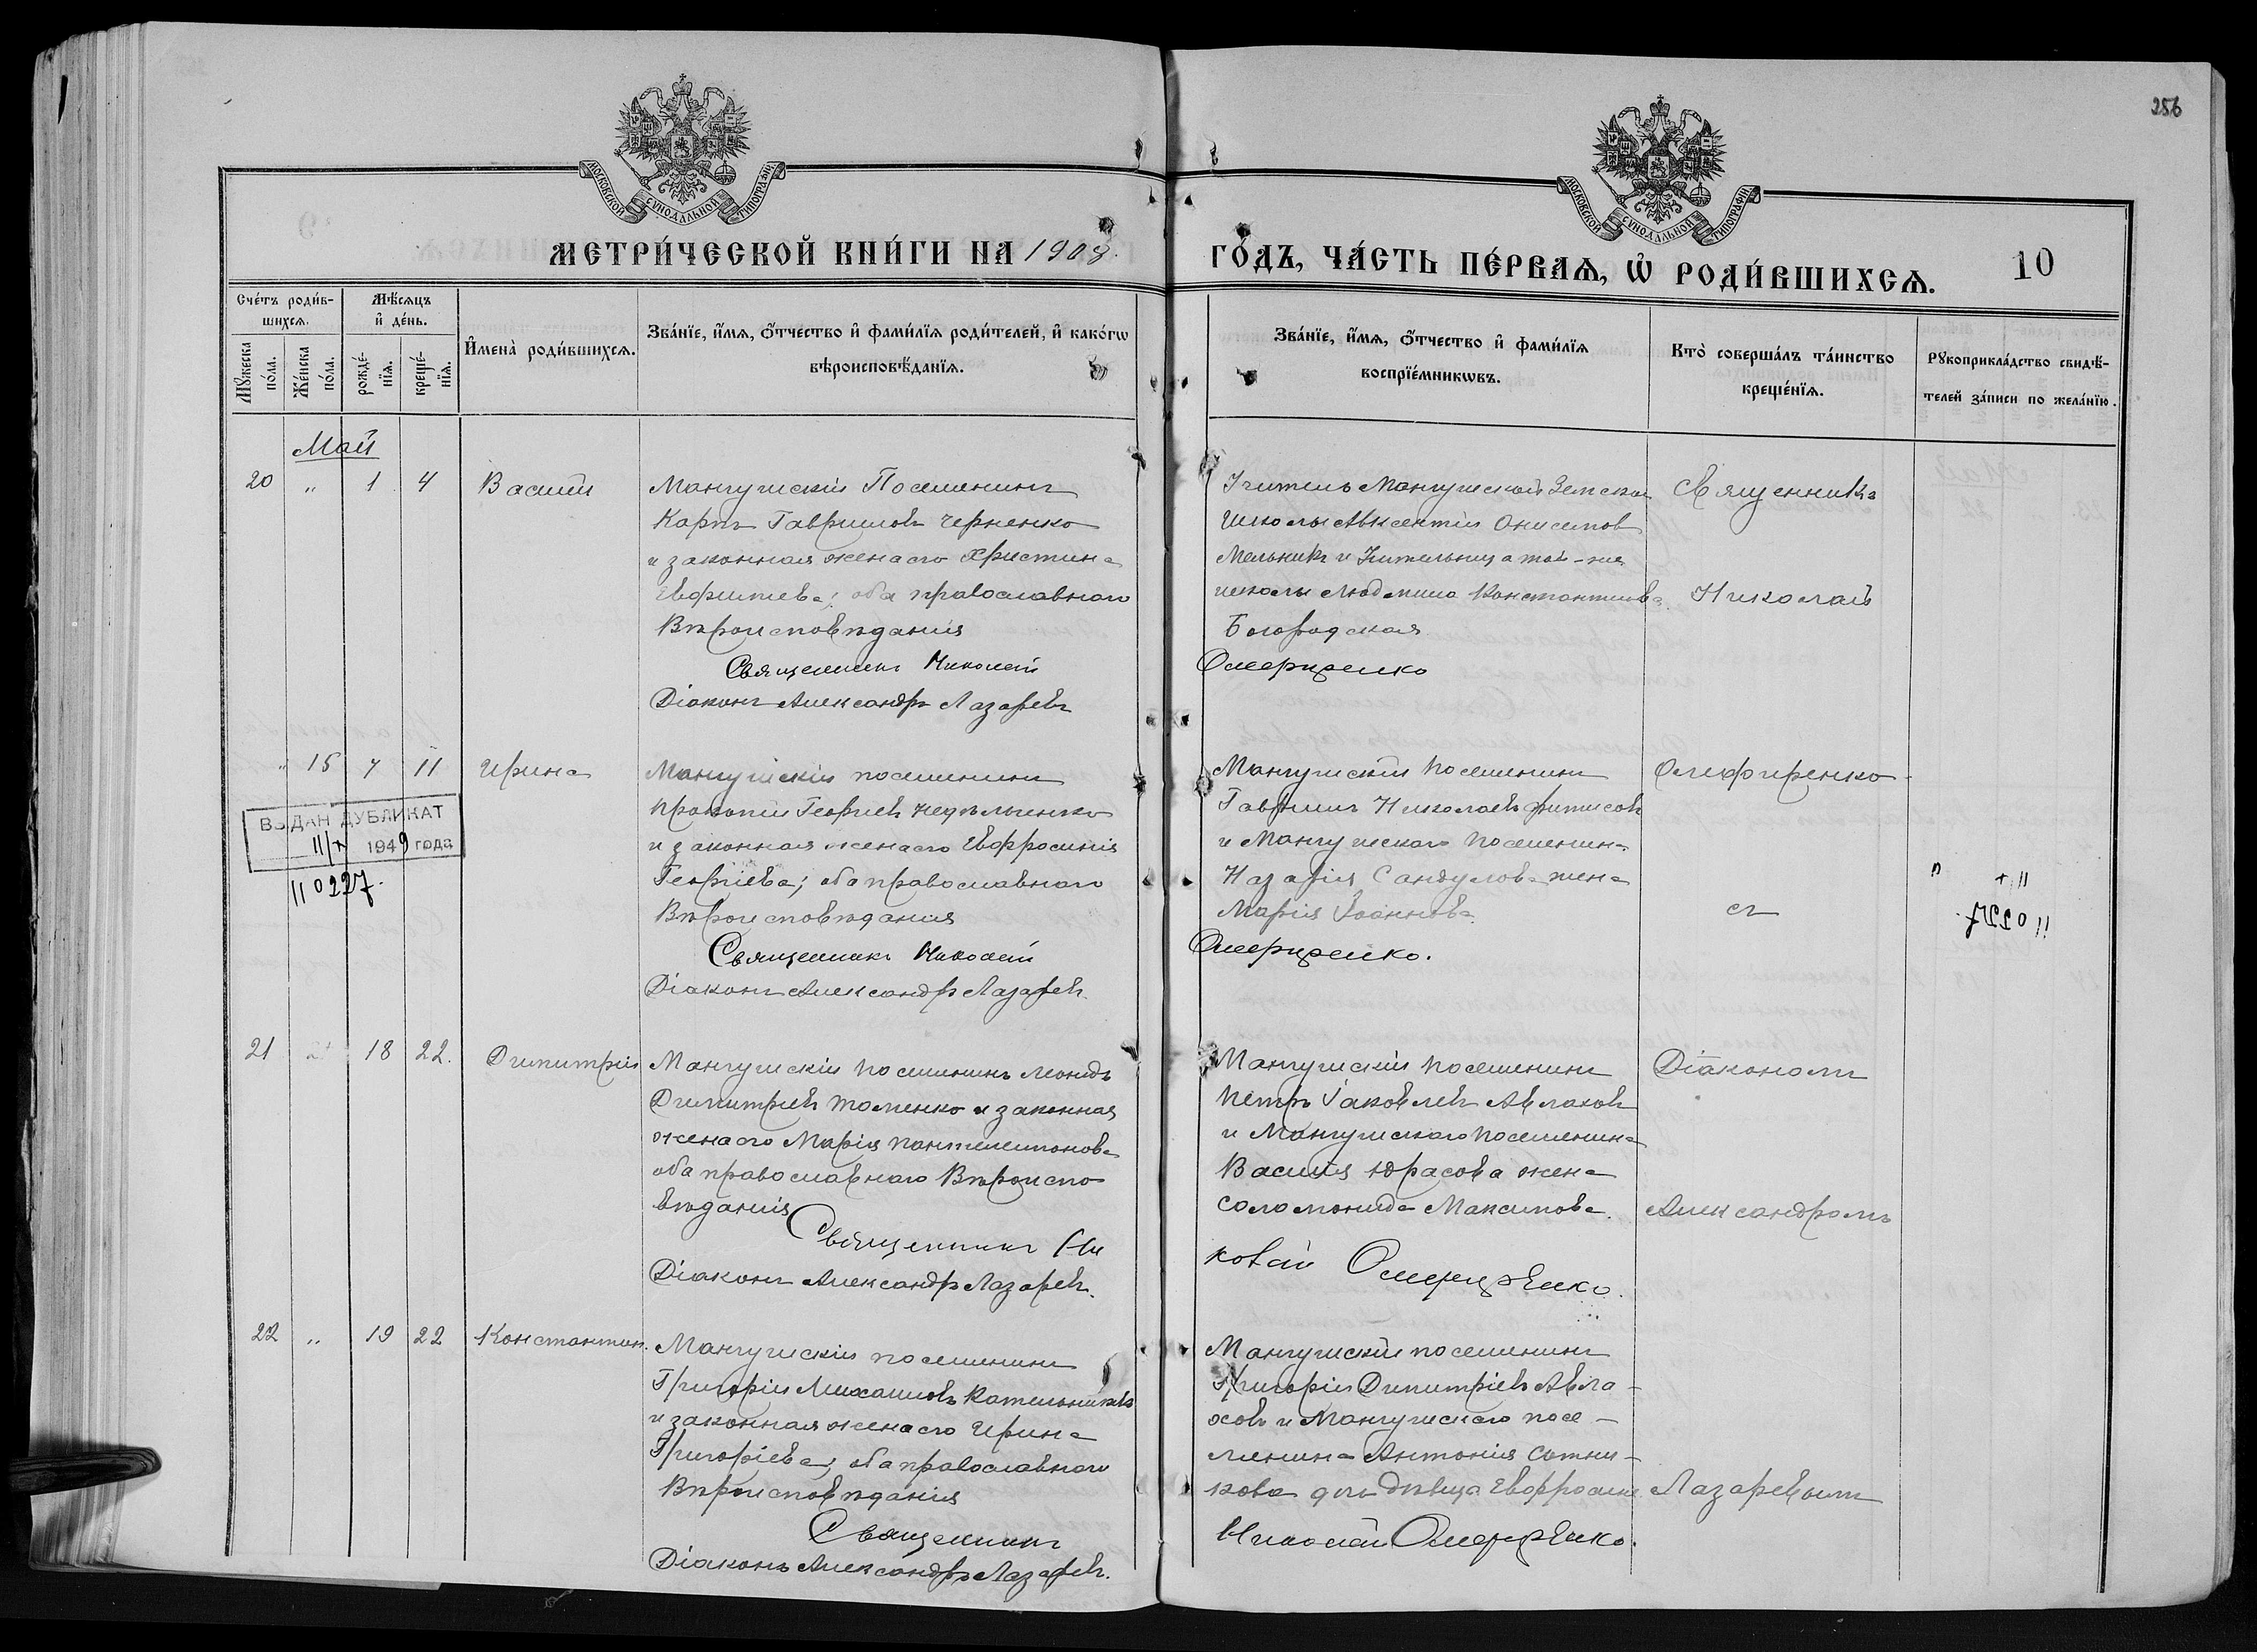 256
МОСКОВСКОЙ СѴНОДАЛЬНОЙ ТИПОГРАФІИ
МОСКОВСКОЙ СѴНОДАЛЬНОЙ ТИПОГРАФІИ
МЕТРИ́ЧЕСКОЙ КНИ́ГИ НА 1908. ГО́ДЪ, ЧА́СТЬ ПЕ́РВАѦ, Ѡ҆ РОДИ́ВШИХСѦ. 10
Сче́тъ роди́в-
шихсѧ.
Мꙋ́жеска
по́ла.
Же́нска
по́ла.
Мѣ́сѧцъ
и҆ де́нь.
рожде́-
нїѧ.
креще́-
нїѧ.
И҆мена̀ роди́вшихсѧ.
Зва́нїе, и҆́мѧ, ѻ҆́тчество и҆ фами́лїѧ роди́телей, и҆ како́гѡ
вѣроисповѣ́данїѧ.
Зва́нїе, и҆́мѧ, ѻ҆́тчество и҆ фами́лїѧ
воспрїе́мникѡвъ.
Кто̀ соверша́лъ та́инство
креще́нїѧ.
Рꙋкоприкла́дство свидѣ́-
телей за́писи по жела́нїю.
Май
20 " 1 4 Василій
Мангушскій Поселенинъ
Карпъ Гавриловъ Черненко
и законная жена его Христина
Евфимиева; оба православнаго
Вѣроисповѣданія
Священникъ Николай
Діаконъ Александръ Лазаревъ
Учитель Мангушской Земской
школы Авксентій Онисимов
Мельникъ и Учительница той-же
школы Людмила Константинова
Богородская
Олефиренко
Священникъ
Николай
" 15 7 11 Ирина
Мангушскій поселенинъ
Прокопій Георгіевъ Недѣльченко
и законная жена его Евфросинія
Георгіева; оба православнаго
Вѣроисповѣданія
Священникъ Николай
Діаконъ Александръ Лазаревъ.
Мангушскій поселенинъ
Гавріилъ Николаевъ Фитисовъ
и Мангушскаго поселенина
Назарія Сандулова жена
Марія Іоаннова.
Олефиренко.
Олефиренко
съ
ВЫДАН ДУБЛИКАТ
11/X 1949 года
110227.
21 18 22. Димитрій
Мангушскій поселенинъ Леонидъ
Димитріевъ Томенко и законная
жена его Марія Пантелеимонова
оба православнаго Вѣроиспо
вѣданія
Священникъ Ни
Діаконъ Александръ Лазаревъ.
Мангушскій поселенинъ
Петръ Іаковлевъ Авлаховъ
и Мангушскаго поселенина
Василія Юрасова жена
Соломонида Максимова.
колай Олефиренко.
Діакономъ
Александромъ
22 " 19 22 Константин.
Мангушскій поселенинъ
Григорій Михаиловъ Кательниковъ
и законная жена его Ирина
Григоріева; оба православнаго
Вѣроисповѣданія
Священникъ
Діаконъ Александръ Лазаревъ.
Мангушскій поселенинъ
Григорій Димитріевъ Авла-
ховъ и Мангушскаго посе-
ленина Антонія Сотни-
кова дочь дѣвица Евфросин.
Николай Олефиренко.
Лазаревымъ